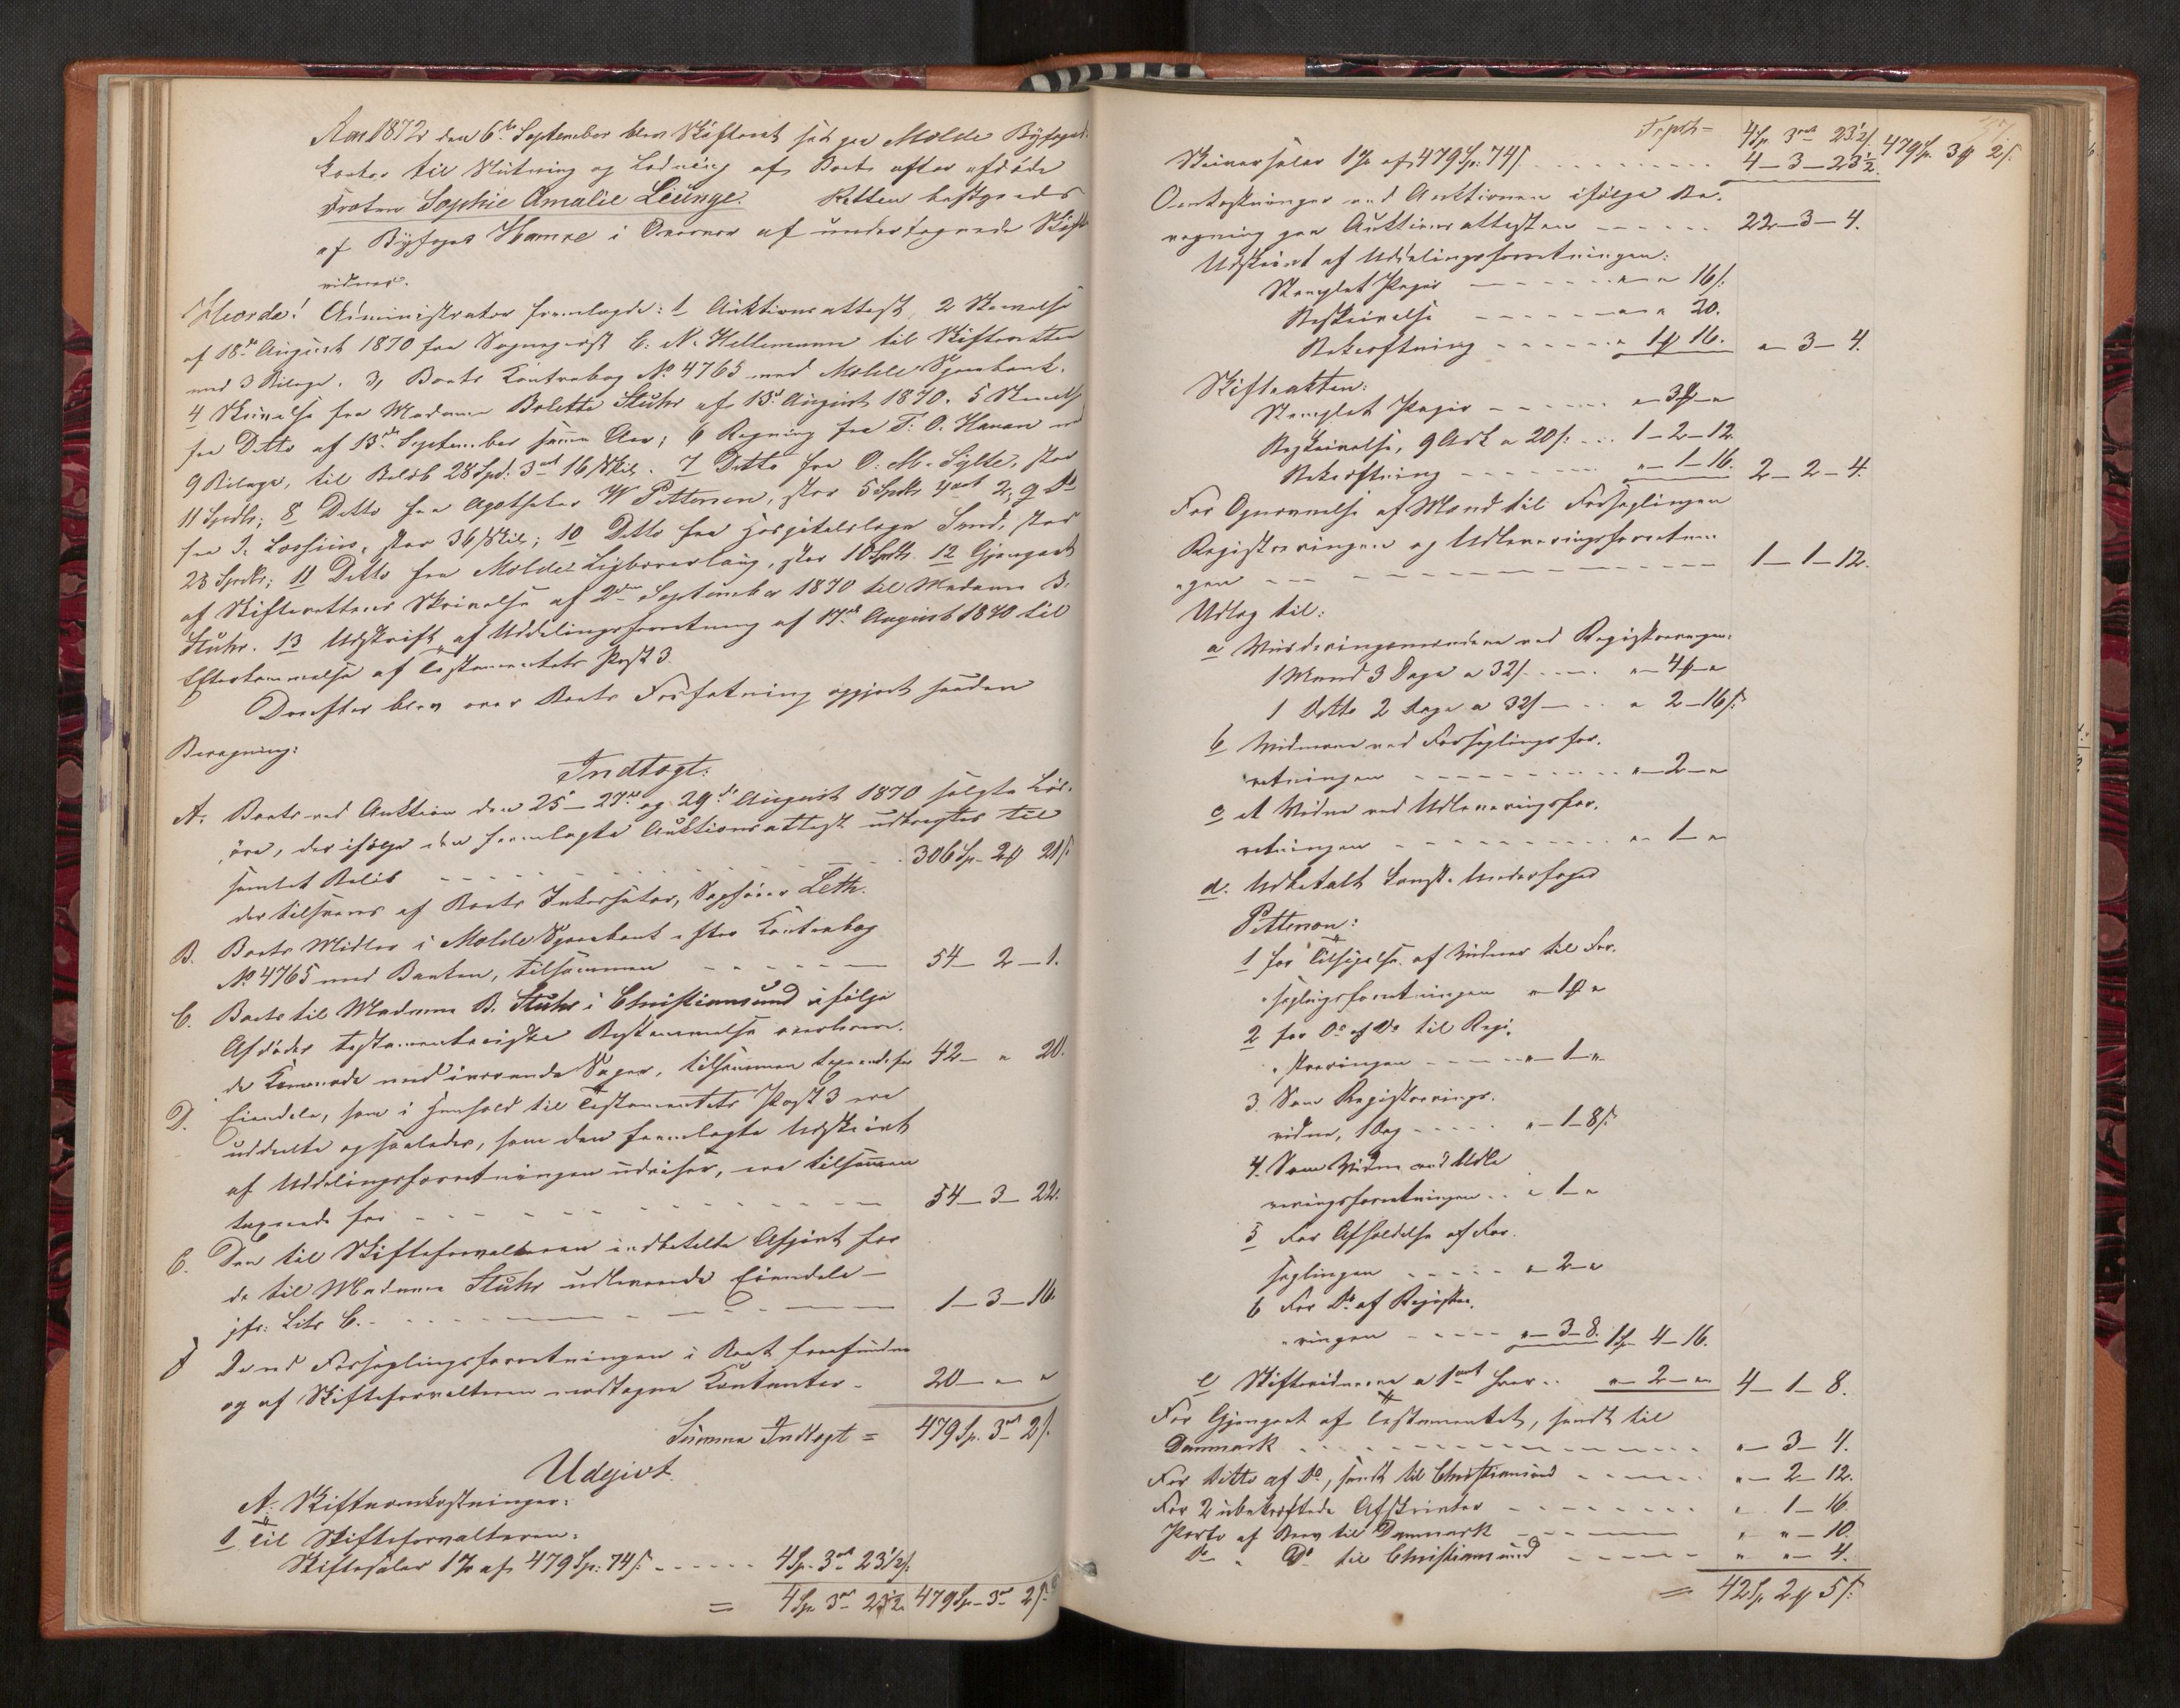 Aar 1872 den 6te September blev Skifteret sat paa Molde Byfogd-
kontor til Slutning og Lodning af Boets efter afdøde
Frøken Sophie Amalie Leunge. Retten bestyredes
af Byfoged Hamre i Overvær af undertegnede Skift
vidner.
Hvorda! Administrator fremlagde: 1 Auktionsattest, 2 Skrivelse
af 18de August 1870 fra Sogneprest C. N. Hellemann til Skifteretten
med 3 Bilage. 3, Boets Kontrabog No 4765 med Molde Sparebank.
4 Skrivelse fra Madame Bolette Stuhr af 15d August 1870. 5 Skrivelse
fra Ditto af 13de September samme Aar; 6 Regning fra T. O. Havan med
9 Bilage, til Beløb 28 Spd: 3ort 16 Skil. 7 Ditto fra O. M. Sylte, stor
11 Spdlr; 8 Ditto fra Apotheker W Petterson, stor 5 Spdlr 4ort 2; 9 Do
fra J. Lossius, stor 36 Skil; 10 Ditto fra Hospitalslæge Lund, stor
28 Spdlr; 11 Ditto fra Molde Ligbærerlaug, stor 10 Spdlr. 12 Gjenpart
af Skifterettens Skrivelse af 2den September 1870 til Madame B.
Stuhr. 13 Udskrift af Uddelingsforretning af 17de August 1870 til
Efterkommelse af Testamentets Post 3.
Derefter blev over Boets Forfatning opgjort saadan
Beregning:
Indtægt:
A. Boets ved Auktion den 25de 27de og 29de August 1870 solgte Løs-
øre, der ifølge den fremlagte Auktionsattest udbragtes til
samlet Beløb 306 Sp. 2ort 21 s:
der tilsvares af Boets Inkassator, Sagfører Leth.
B. Boets Midler i Molde Sparebank efter Kontrabog
No 4765 med Banken, tilsammen 54 - 2 - 1.
C. Boets til Madame B. Stuhr i Christiansund ifølge
Afdødes testamentariske Bestemmelse
de Kommode med iværende Sager, tilsammen taxerede for 42 - " 20.
D. Eiendele, som i Henhold til Testamentets Post 3 ere
uddeelte og saaledes, som den fremlagte Udskrivt
af Uddelingsforretningen udviser, ere tilsammen
taxerede for 54 - 3 - 22.
E. Den til Skifteforvalteren indbetalte Afgivt for
de til Madame Stuhr udleverede Eiendele -
jfr: Litr C. 1 - 3 - 16.
F De ved Forseglingsforretningen i Boet forefundne
og af Skifteforvalteren modtagne Kontanter. 20 - " - "
Summa Indtægt = 479 Sp. 3ort 2 s.
Udgivt.
A. Skifteomkostninger:
1 Til Skifteforvalteren:
Skiftesalær 1% af 479 Sp: 74 s: 4 Sp. 3ort 23 1/2 s.
= 4 Sp. 3ort 23 1/2. 479 Sp. 3ort 2 s.
Trpsh = 4 Sp. 3ort 23 1/2 s. 479 Sp. 3ort 2 s.
Skriversalær 1% af 479 Sp: 74 s 4 - 3 - 23 1/2.
Omkostninger ved Auktionen ifølge Be-
regning paa Auktionsattesten 22 - 3 - 4.
Udskrivt af Uddelingsforretningen:
Stemplet Papir " - " 16 s:
Beskrivelse " - " 20.
Bekræftning " 1ort 16. " - 3 - 4.
Skifteakten:
Stemplet Papir " - 3ort - "
Beskrivelse, 9 Ark a 20 s: 1 - 2 - 12
Bekræftning " - 1 - 16. 2 - 2 - 4.
For Opnævnelse af Mænd til Forseglingen
Registreringen og Udleveringsforretnin-
gen 1 - 1 - 12.
Udlæg til:
a Vurderingsmændene ved Registreringen:
1 Mand 3 Dage a 32 s " - 4ort - "
1 Ditto 2 Dage a 32 s " 2 - 16 s:
b Vidnerne ved Forseglingsfor-
retningen " - 2 - "
c et Vidne ved Udleveringsfor-
retningen " - 1 - "
d. Udbetalt Konst. Underfoged
Petterson:
1 for Tilsigelse af Vidner til For-
seglingsforretningen " - 1ort "
2 for Do af Do til Regi-
streringen " - 1 - "
3. Som Registrerings-
vidne, 1 Dag " - 1 - 8 s:
4. Som Vidne ved Udle
veringsforretningen " 1 - "
5 For Afholdelse af For-
seglingen " - 2 - "
6 For Do af Registre-
ringen " - 3 - 8. 1 Sp 4 - 16.
e Skiftevidnerne a 1ort hver " - 2 - " 4 - 1 - 8.
For Gjenpart af Testamentet, sendt til
Danmark " - 3 - 4.
For Ditto af Do, sendt til Christiansund " - 2 - 12.
For 2 ubekræftede Afskrivter " 1 - 16.
Porto af Brev til Danmark " " - 10.
Do " Do til Christiansund " " - 4.
= 42 Sp 2ort 5 s: